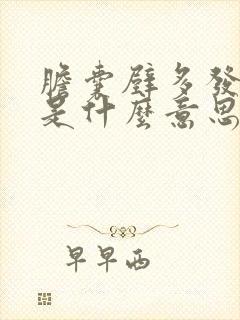 膽囊壁多發
是什麼意思
早早西